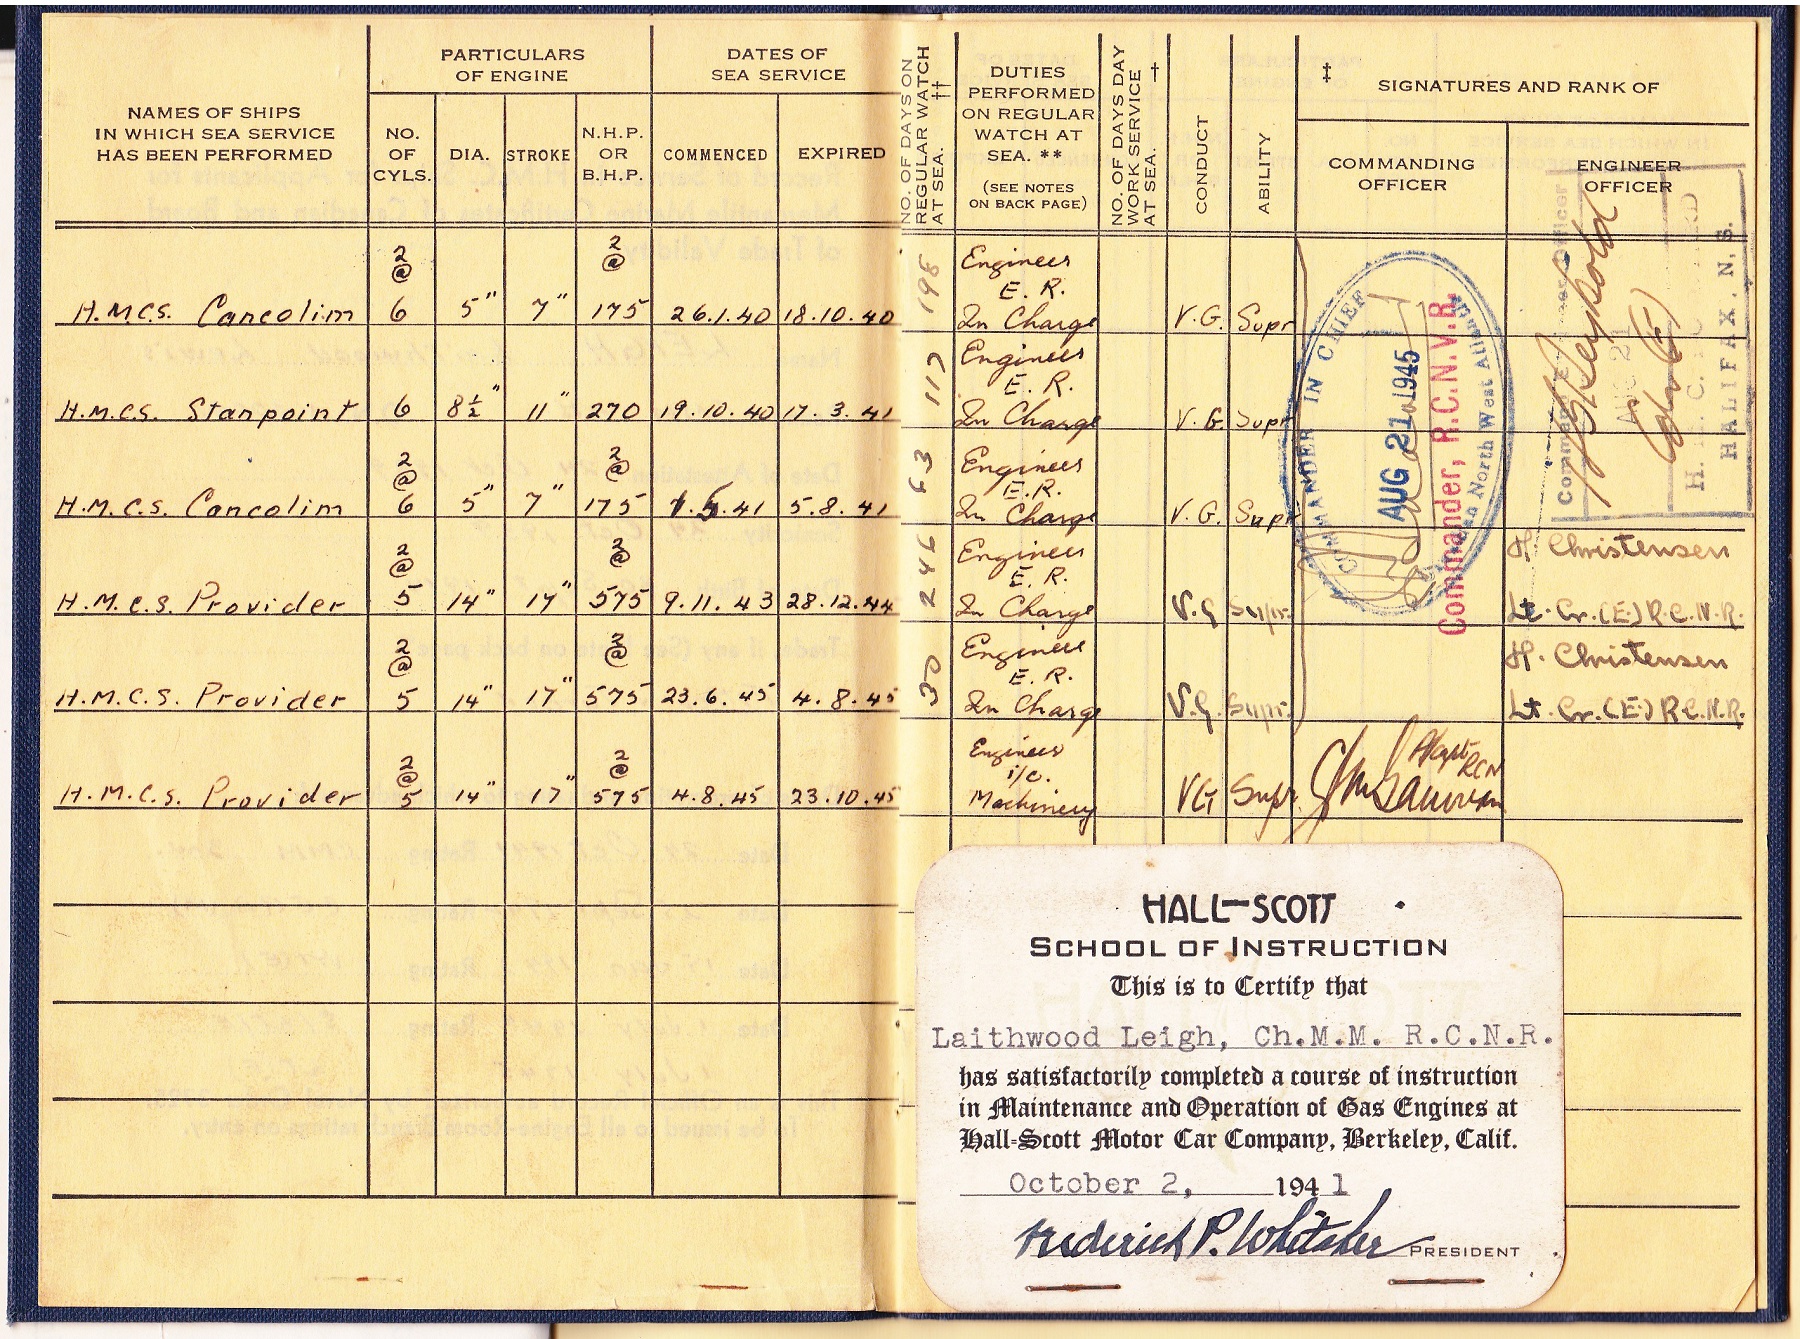 NAMES OF SHIPS
IN WHICH SEA SERVICE
HAS BEEN PERFORMED
PARTICULARS
OF ENGINE
NO.
OF
CYLS.
DIA.
STROKE
N.H.P.
OR
B.H.P.
DATES OF
SEA SERVICE
COMMENCED
EXPIRED
NO. OF DAYS ON
REGULAR WATCH
AT SEA. ††
DUTIES
PERFORMED
ON REGULAR
WATCH AT
SEA. **
(SEE NOTES
ON BACK PAGE)
NO. OF DAYS DAY
WORK SERVICE
AT SEA. †
CONDUCT
ABILITY
‡ SIGNATURES AND RANK OF
COMMANDING
OFFICER
ENGINEER
OFFICER
H.M.C.S. Cancolim 2 @ 6 5" 7" 2 @ 175 26.1.40 18.10.40 198 Engineer E.R. In Charge V.G. Supr
H.M.C.S. Stanpoint 6 8½" 11" 270 19.10.40 17.3.41 117 Engineer E.R. In Charge V.G. Supr
H.M.C.S. Cancolim 2 @ 6 5" 7" 2 @ 175 1.5.41 5.8.41 63 Engineer E.R. In Charge V.G. Supr
H.M.C.S. Provider 2 @ 5 14" 17" 2 @ 575 9.11.43 28.12.44 246 Engineer E.R. In Charge V.G Supr. H. Christensen
Lt. Cr. (E) R.C.N.R.
H.M.C.S. Provider 2 @ 5 14" 17" 2 @ 575 23.6.45 4.8.45 30 Engineer E.R. In Charge V.G. Supr. H. Christensen
Lt. Cr. (E) R.C.N.R.
H.M.C.S. Provider 2 @ 5 14" 17" 2 @ 575 4.8.45 23.10.45 Engineer i/c. Machinery VG Supr. RCN
COMMANDER IN CHIEF
AUG 21 1945
North West Atlantic
Commander, R.C.N.V.R.
AUG 21
H.M.C.
HALIFAX, N.S.
HALL-SCOTT
SCHOOL OF INSTRUCTION
This is to Certify that
Laithwood Leigh, Ch.M.M. R.C.N.R.
has satisfactorily completed a course of instruction
in Maintenance and Operation of Gas Engines at
Hall-Scott Motor Car Company, Berkeley, Calif.
October 2, 1941
Frederick P. Whitaker PRESIDENT